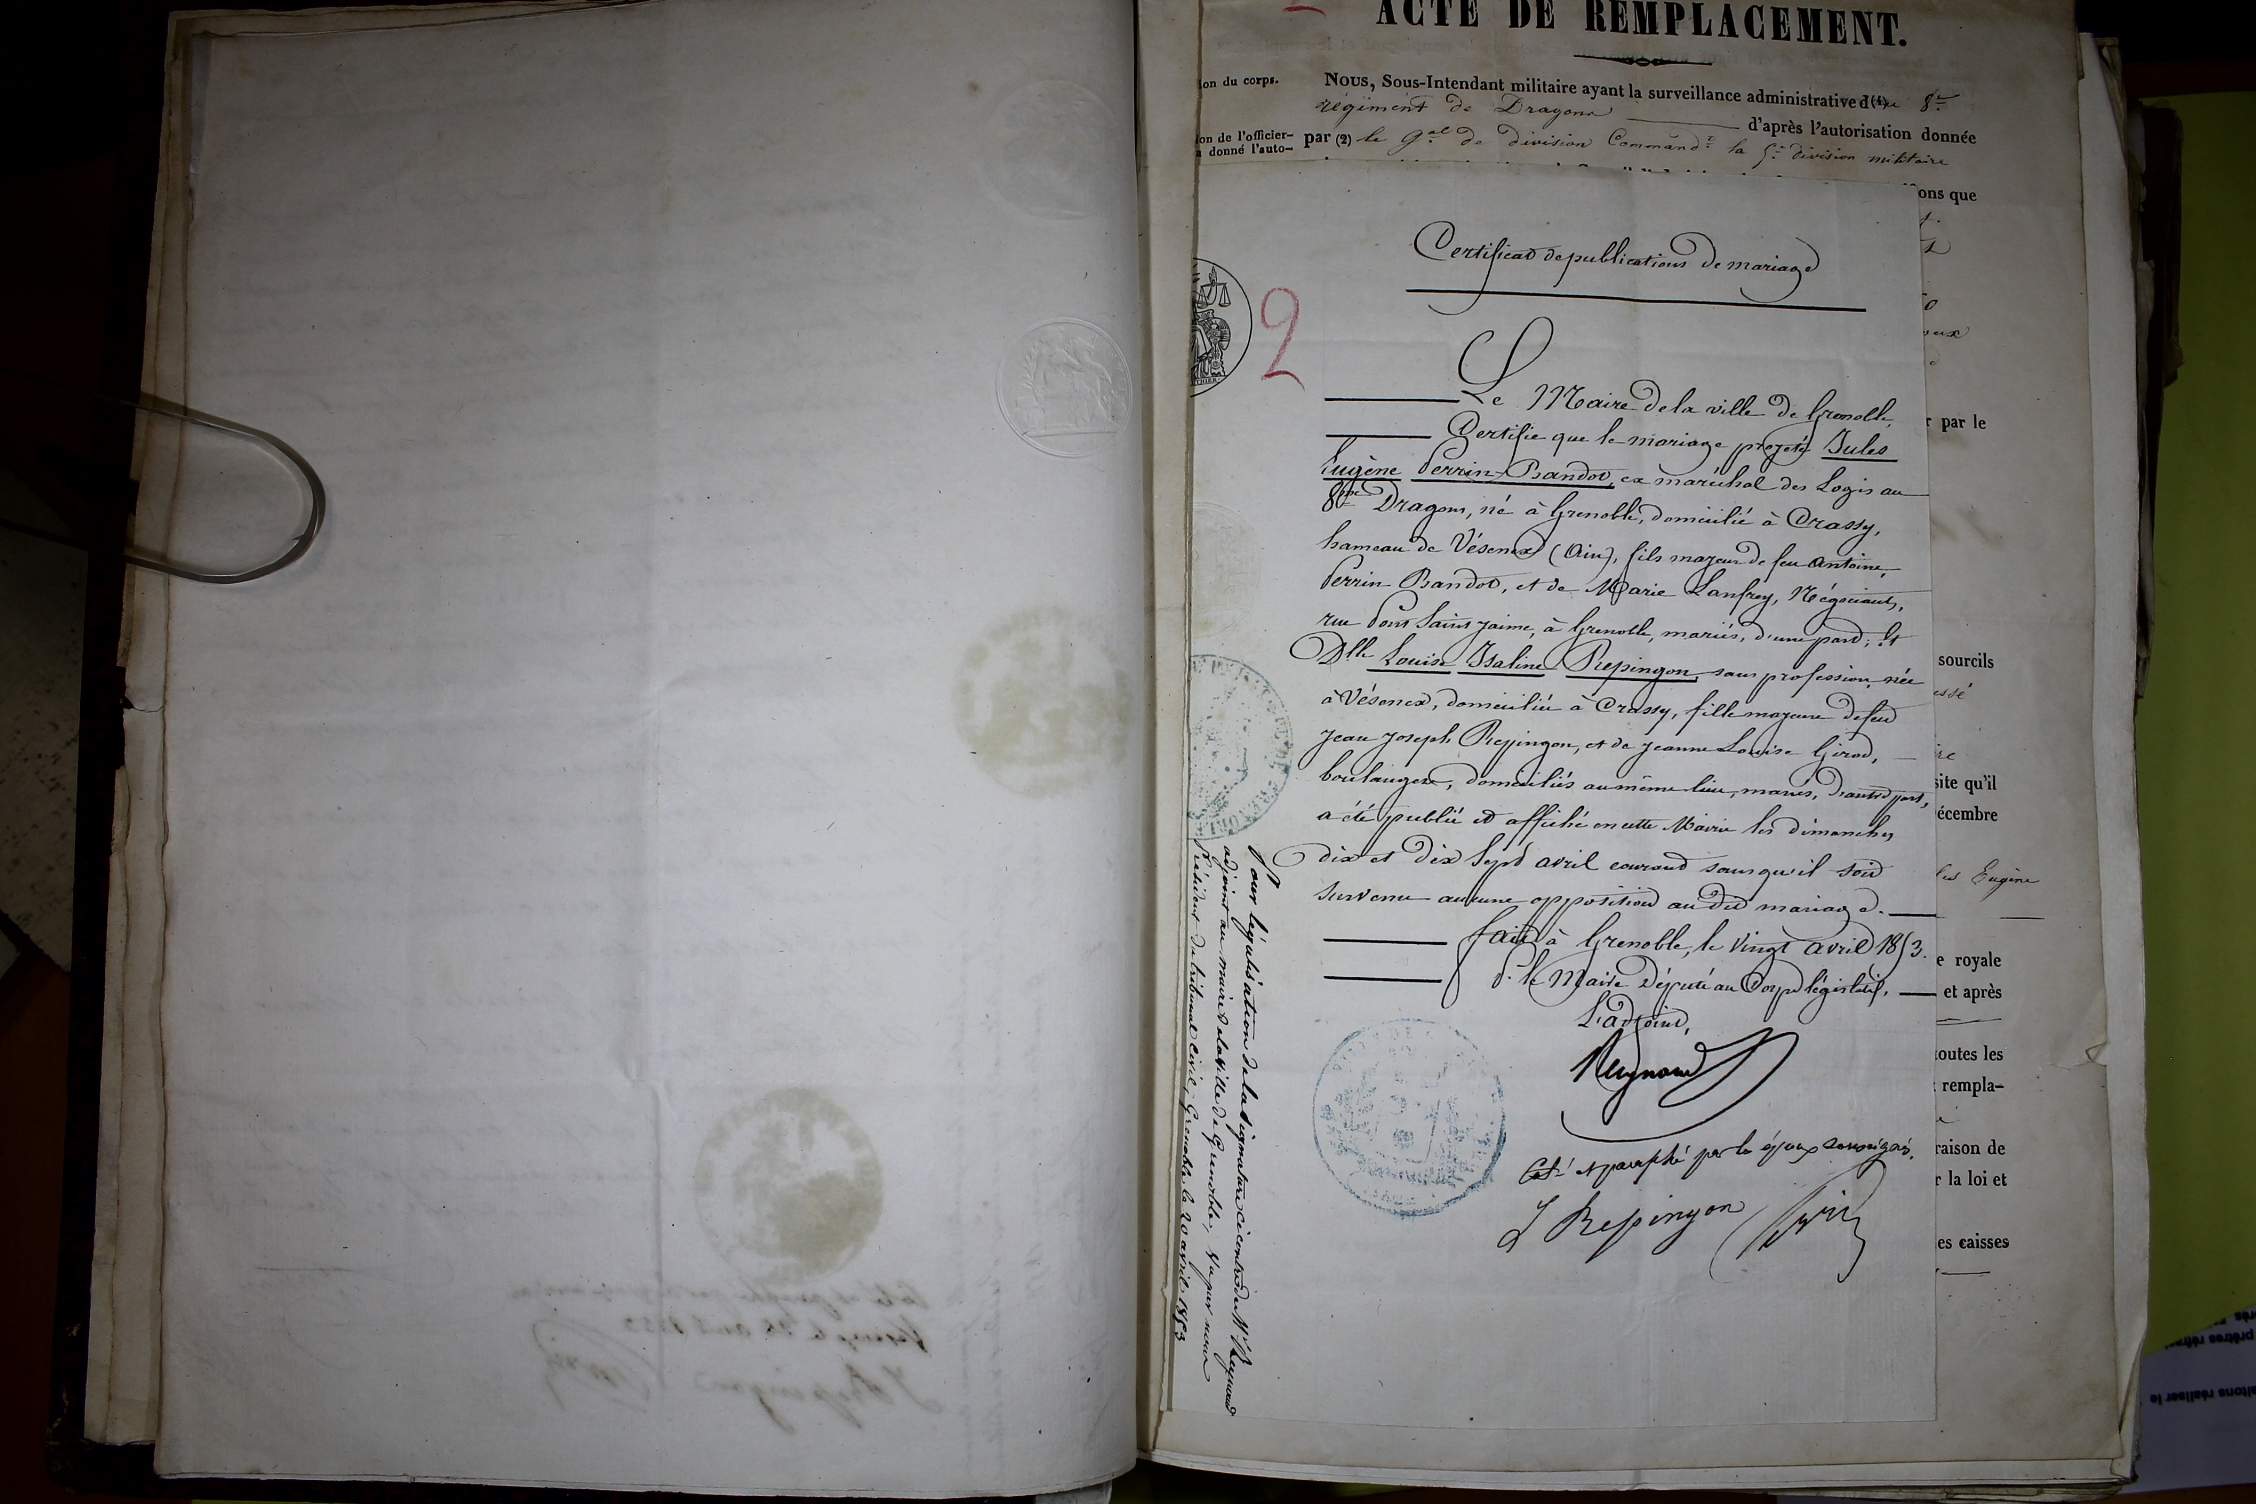 ACTE DE REMPLACEMENT.
ion du corps.
Nous, Sous-Intendant militaire ayant la surveillance administrative d(1)u 8e
régiment de Dragons d'après l'autorisation donnée
ion de l'officier-
a donné l'auto-
par (2) le Gal de division Commandt la 5e division militaire
ons que
Certificat de publications de mariage
2
Le Maire de la ville de Grenoble,
Certifie que le mariage projeté Jules
Eugène Perrin-Bandot, ex maréchal des Logis au
8me Dragons, né à Grenoble, domicilié à Crassy,
hameau de Vésenex (Ain), fils majeur de feu Antoine,
Perrin Bandot, et de Marie Lanfrey, Négociants,
rue Pont Saint Jaime, à Grenoble, mariés, d'une part; Et
Dlle Louise Isaline Repingon, sans profession, née
à Vésenex, domiciliée à Crassy, fille majeure de feu
Jean Joseph Repingon, et de Jeanne Louise Girod,
boulangers, domiciliés au même lieu, mariés, d'autre part,
a été publié et affiché en cette Mairie les dimanches
dix et dix Sept avril courant sans qu'il soit
survenu aucune opposition au dit mariage.
fait à Grenoble, le vingt avril 1853.
P. le Maire Député au Corps législatif,
L'adjoint,
Reynaud
Coté et paraphé par les époux soussignés.
L Repingon
Pour légalisation de la signature ci contre de Mr Reynaud
adjoint au maire de la ville de Grenoble, Vu par nous
Président du tribunal civil, Grenoble le 20 avril 1853
r par le
sourcils
essé
site qu'il
écembre
les Eugène
e royale
et après
toutes les
rempla-
raison de
r la loi et
es caisses